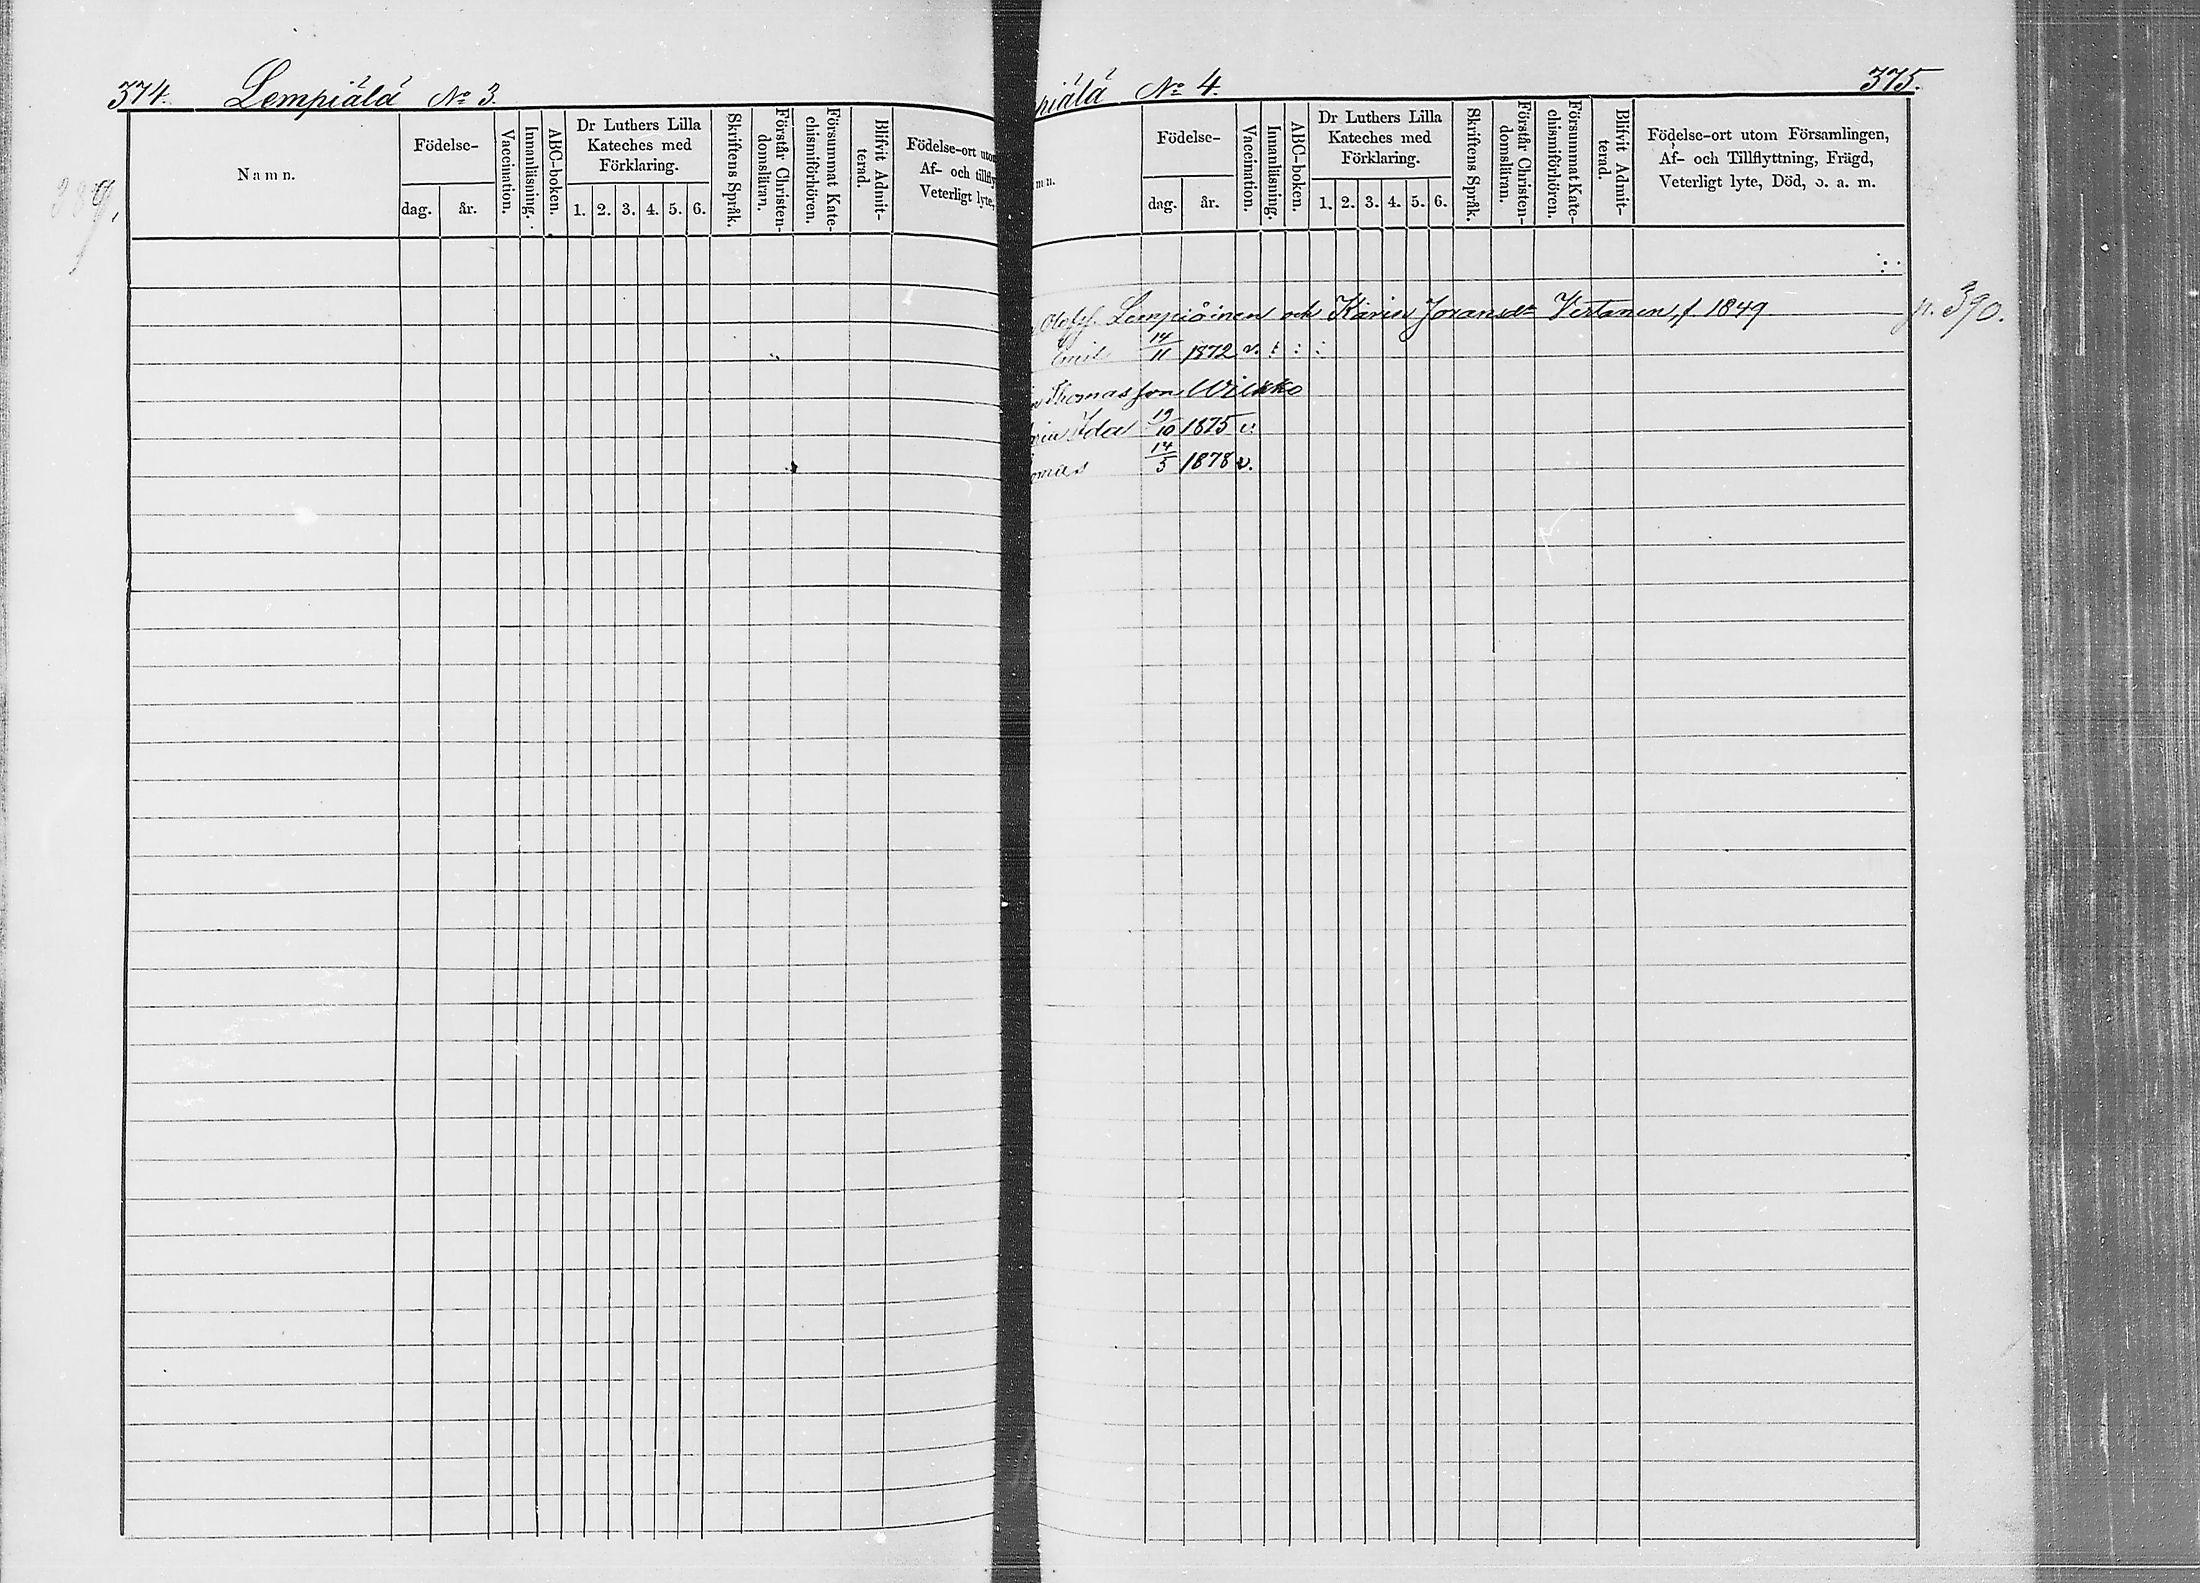 374. Lempiälä No 3.
389.
Namn.
Födelse-
dag. år.
Vaccination.
Innanläsning.
ABC-boken.
Dr Luthers Lilla
Kateches med
Förklaring.
1. 2. 3. 4. 5. 6.
Skriftens Språk.
Förstår Christen-
domsläran.
Försummat Kate-
chismiförhören.
Blifvit Admit-
terad.
Födelse-ort uto
Af- och tillfly
Veterligt lyte,
piälä No 4. 375.
mn.
Födelse-
dag. år.
Vaccination.
Innanläsning.
ABC-boken.
Dr Luthers Lilla
Kateches med
Förklaring.
1. 2. 3. 4. 5. 6.
Skriftens Språk.
Förstår Christen-
domsläran.
Försummat Kate-
chismiförhören.
Blifvit Admit-
terad.
Födelse-ort utom Församlingen,
Af- och Tillflyttning, Frägd,
Veterligt lyte, Död, o. a. m.
Lempiäinen och Karin Joransdr Vertanen, f. 1849 p. 390.
Emil 14/11 1872 v. : : :
Thomasson Wilkko
ria Ida 19/10 1875 v.
omas 14/5 1878 v.